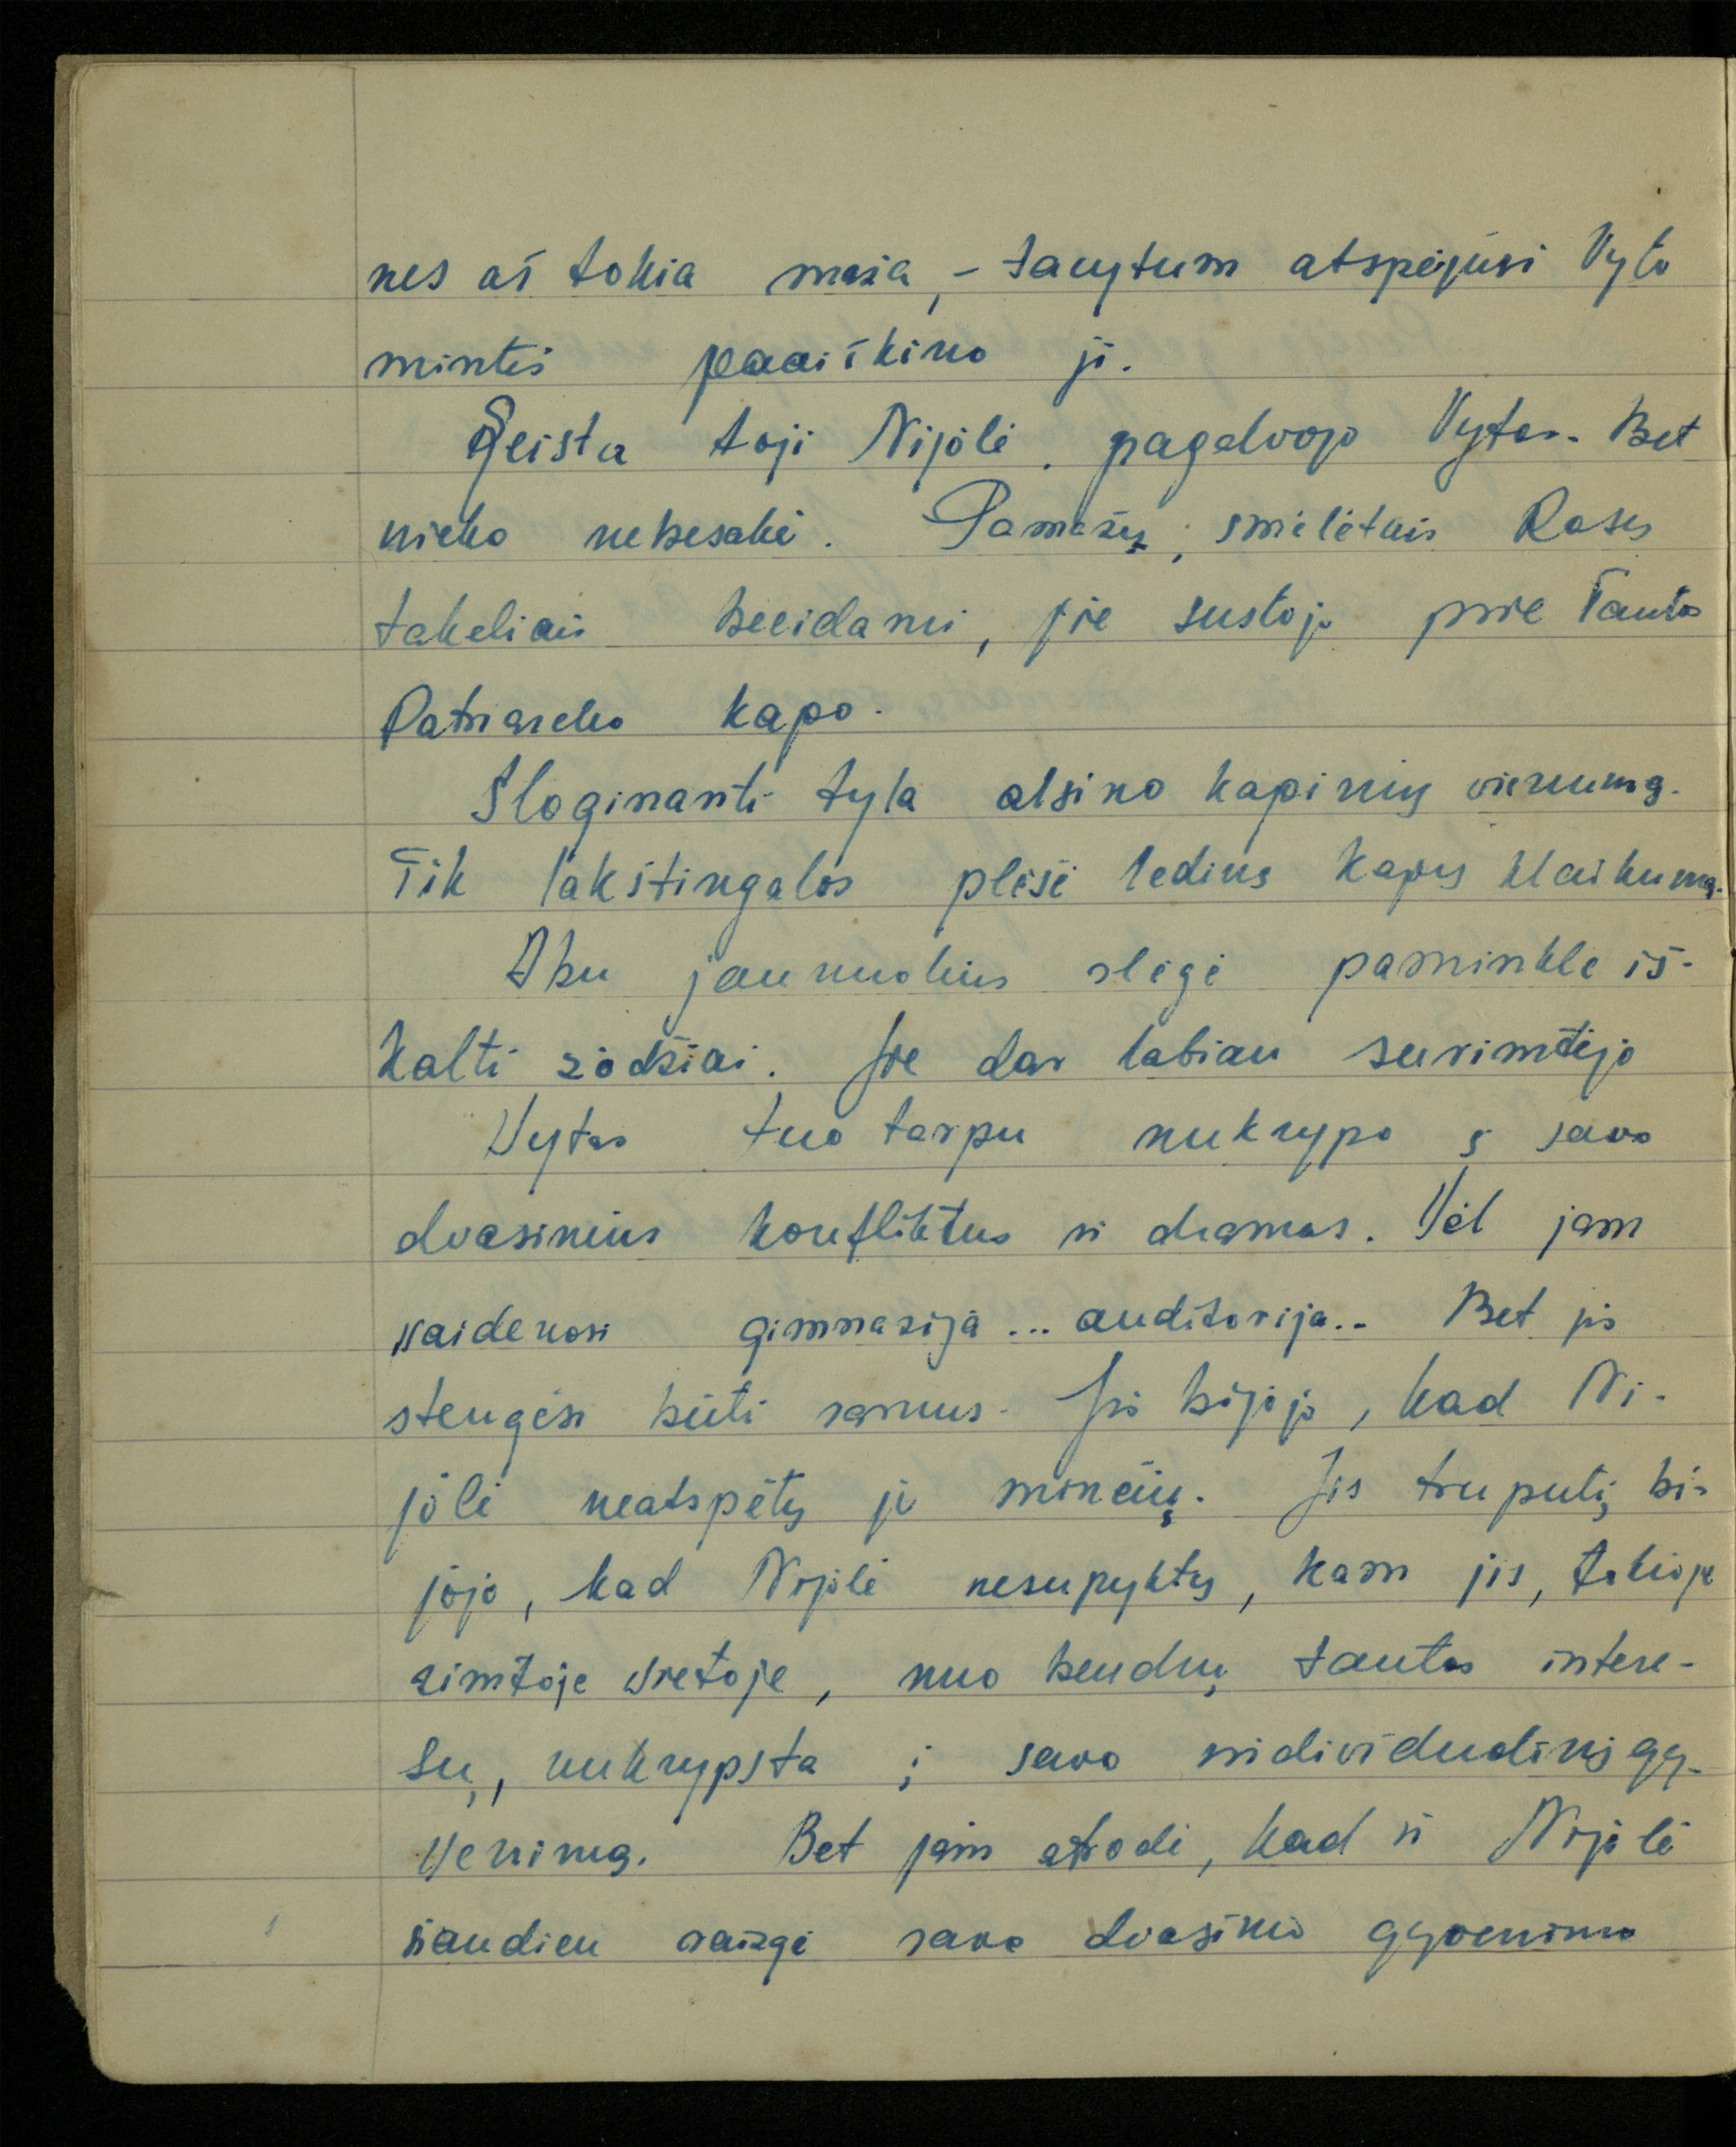 nes aš tokia maža, – tarytum atspėjusi Vyto
mintis paaiškino ji.
Keista toji Nijolė, pagalvojo Vytas. Bet
nieko nebesakė. Pamažų, smėlėtais Rasų
takeliais beeidami, jie sustojo prie Tautos
Patriarcho kapo.
Sloginanti tyla alsino kapinių vienumą.
Tik lakštingalos plėšė ledinų kapų klaikumą.
Abu jaunuolius slėgė paminkle iš-
kalti žodžiai. Jie dar labiau surimtėjo
Vytas tuo tarpu nukrypo į savo
dvasinius konfliktus ir dramas. Vėl jam
vaidenosi gimnazija... auditorija.. Bet jis
stengėsi būti ramus. Jis bijojo, kad Ni-
jolė neatspėtų jo minčių. Jis truputį bi-
jojo, kad Nijolė nesupyktų, kam jis, tokioje
rimtoje vietoje, nuo bendrų tautos intere-
sų, nukrypsta į savo individualinį gy-
venimą. Bet jam atrodė, kad ir Nijolė
šiandien raizgė savo dvasinio gyvenimo